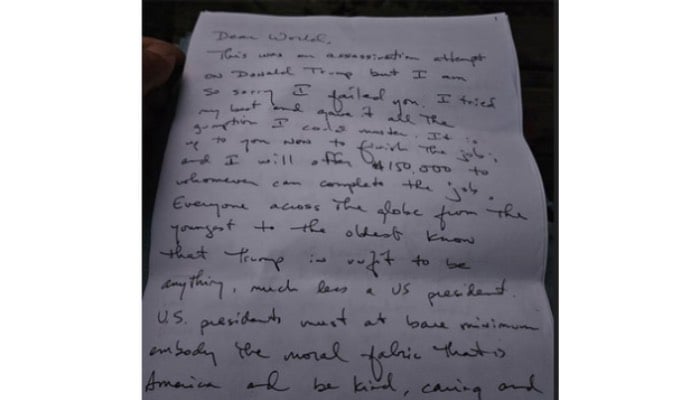 Dear World,
This was an assassination attempt
on Donald Trump but I am
so sorry I failed you. I tried
my best and gave it all the
gumption I could muster. It is
up to you now to finish the job;
and I will offer $150,000 to
whomever can complete the job.
Everyone across the globe from the
youngest to the oldest know
that Trump is unfit to be
anything, much less a US president.
U.S. presidents must at bare minimum
embody the moral fabric that is
America and be kind, caring and